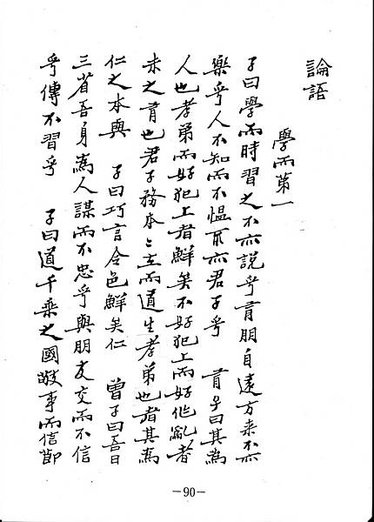 論語
學而第一
子曰學而時習之不亦說乎有朋自遠方来不亦
樂乎人不知而不慍不亦君子乎 有子曰其為
人也孝弟而好犯上者鮮矣不好犯上而好作亂者
未之有也君子務本〻立而道生孝弟也者其為
仁之本與 子曰巧言令色鮮矣仁 曾子曰吾日
三省吾身為人謀而不忠乎與朋友交而不信
乎傳不習乎 子曰道千乘之國敬事而信節
-90-